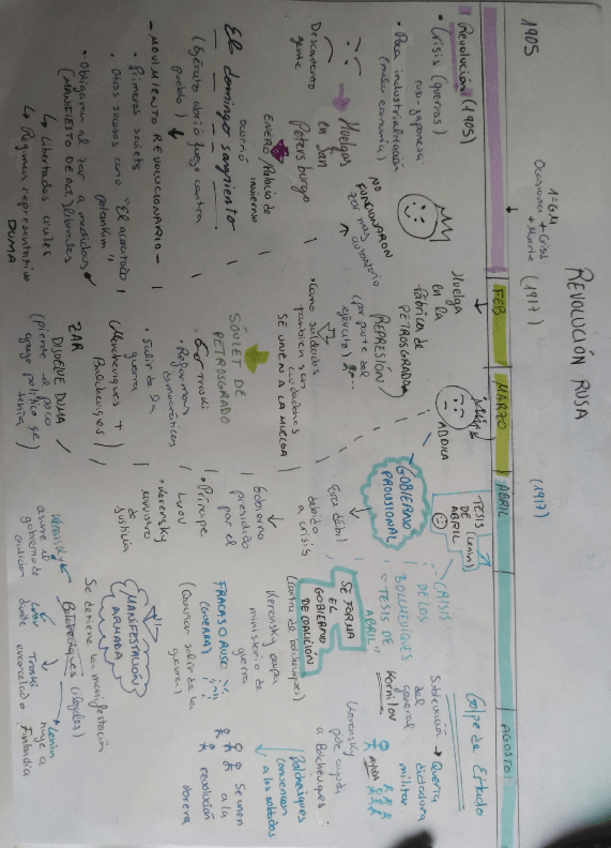 REVOLUCIÓN RUSA
1905
1ª GM
(1917)
(1917)
FEB
MARZO
ABRIL
AGOSTO
Revolución (1905)
• Crisis (guerras)
ruso-japonesa
• Poca industrialización
(mala economía)
Descontento
gente
Huelgas
en San
Petersburgo
ocurrió
ENERO/Palacio de
invierno
El domingo sangriento
(Ejército abrió fuego contra
pueblo)
- MOVIMIENTO REVOLUCIONARIO -
• Primeros soviets
• Otros sucesos como "El acorazado
potemkim"
• Obligaron al zar a medidas
(MANIFIESTO DE OCT) liberales
↳ Libertades civiles
↳ Régimen representativo
DUMA
NO
FUNCIONARON
zar muy
autoritario
Huelga
en la
fábrica de
PETROSGRADO
REPRESIÓN
(por parte del
ejército)
• Como soldados
también son
ciudadanos
SE UNEN A LA HUELGA
SÓVIET DE
PETROSGRADO
• Troski
• Reformas
democráticas
• Salir de la
guerra
(Mencheviques +
Bolcheviques)
ZAR
DISUELVE DUMA
(pierde el poco
apoyo político qe
tenía)
ABDICA
GOBIERNO
PROVISIONAL
Era débil
debido
a crisis
Gobierno
presidido
por el
• Príncipe
Lvov
• Kerensky
ministro
de
Justicia
TESIS
DE
ABRIL
(Lenin)
CRISIS
DE LOS
BOLCHEVIQUES
"TESIS DE
ABRIL"
SE FORMA
EL
GOBIERNO
DE COALICIÓN
(contra de bolcheviques)
Kerensky ocupa
ministerio de
guerra
FRACASO RUSO
(GUERRA)
(Quieren salir de la
guerra)
MANIFESTACIÓN
ARMADA
Se detiene la manifestación
Bolcheviques (ilegales)
Kerensky
asume el
gobierno de
coalición
Lvov
dimite
Troski
encarcelado
Lenin
huye a
Finlandia
Golpe de Estado
Sublevación → Quería
del dictadura
general militar
Kornilov
AYUDA
Kerensky
pide ayuda
a Bolcheviques
Bolcheviques
convencen
a los soldados
Se unen
a la
revolución
obrera